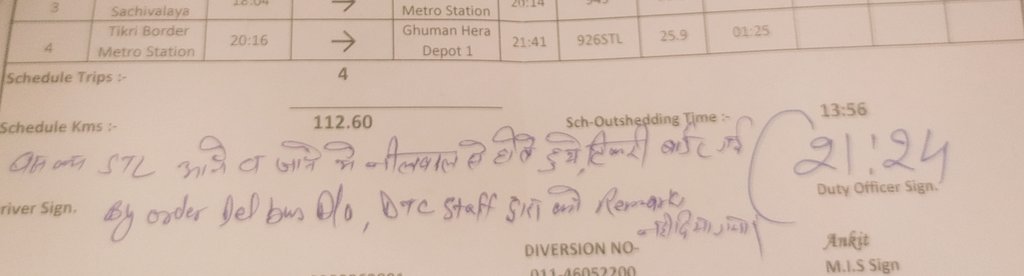 3 Sachivalaya 18:04 → Metro Station 20:14 945
4 Tikri Border Metro Station 20:16 → Ghuman Hera Depot 1 21:41 926STL 25.9 01:25
Schedule Trips :- 4
Schedule Kms :- 112.60 Sch-Outshedding Time :- 13:56
STL आने व जाने में नीलवाल से होते हुये, टिकरी बार्डर गई 21:24
Duty Officer Sign.
river Sign. By order Del bus D/o, DTC staff द्वारा कोई Remark
नही दिया गया।
DIVERSION NO- Ankit
011-46052200 M.I.S Sign